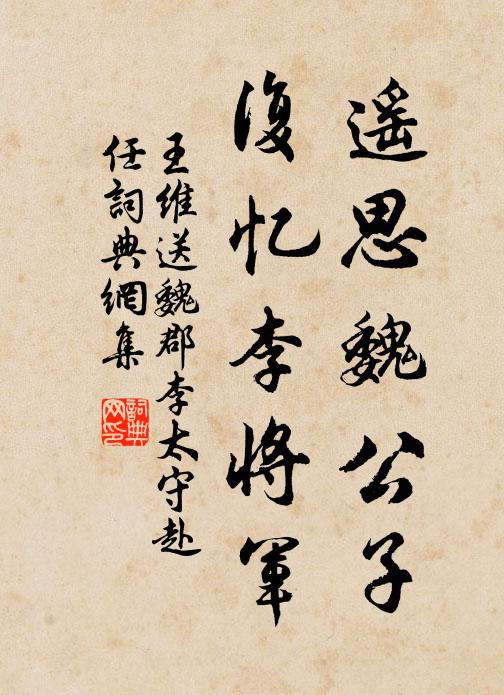 遥思魏公子
復忆李將軍
王維送魏郡李太守赴
任詞典網集
詞典网印